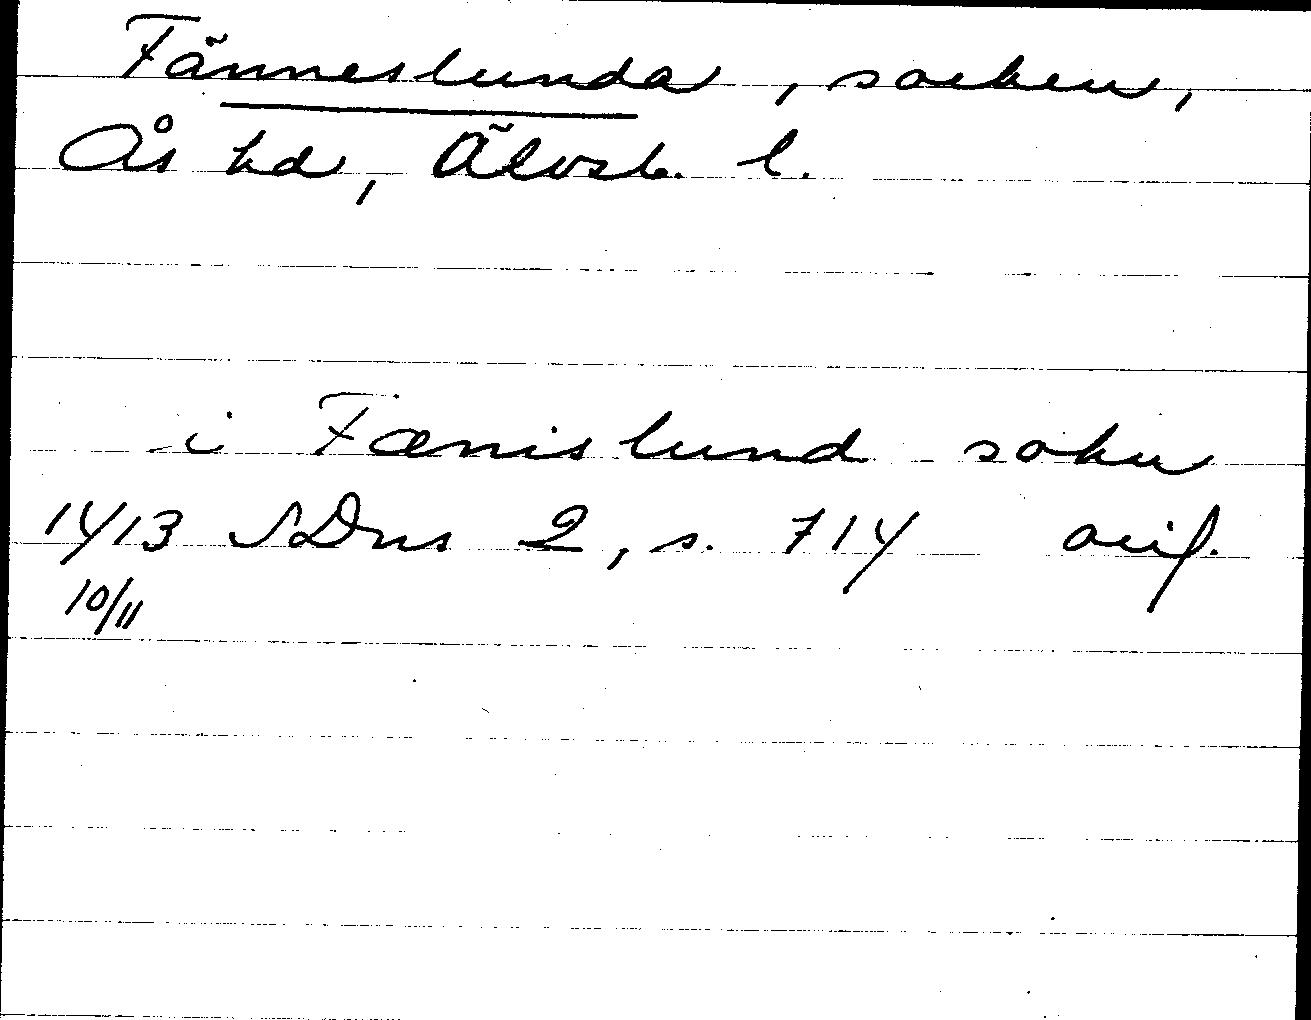 Fänneslunda, socken,
Ås hd, Älvsb. l.
i Fænislund sokn
1413 SDns 2, s. 714 avif.
10/11